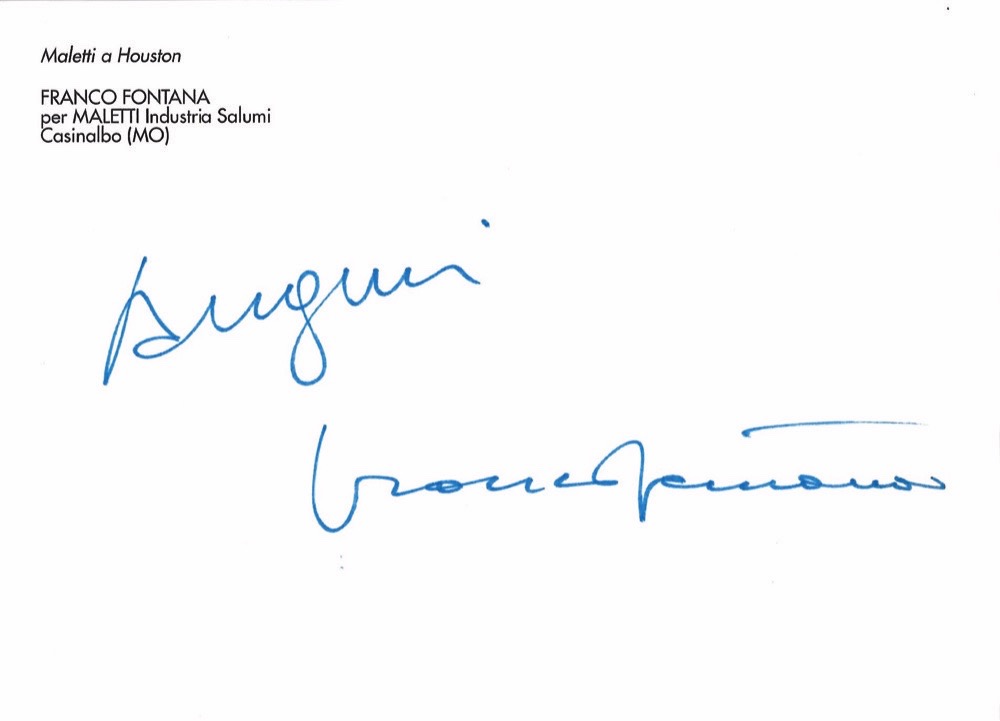 Maletti a Houston
FRANCO FONTANA
per MALETTI Industria Salumi
Casinalbo (MO)
Auguri
Franco Fontana